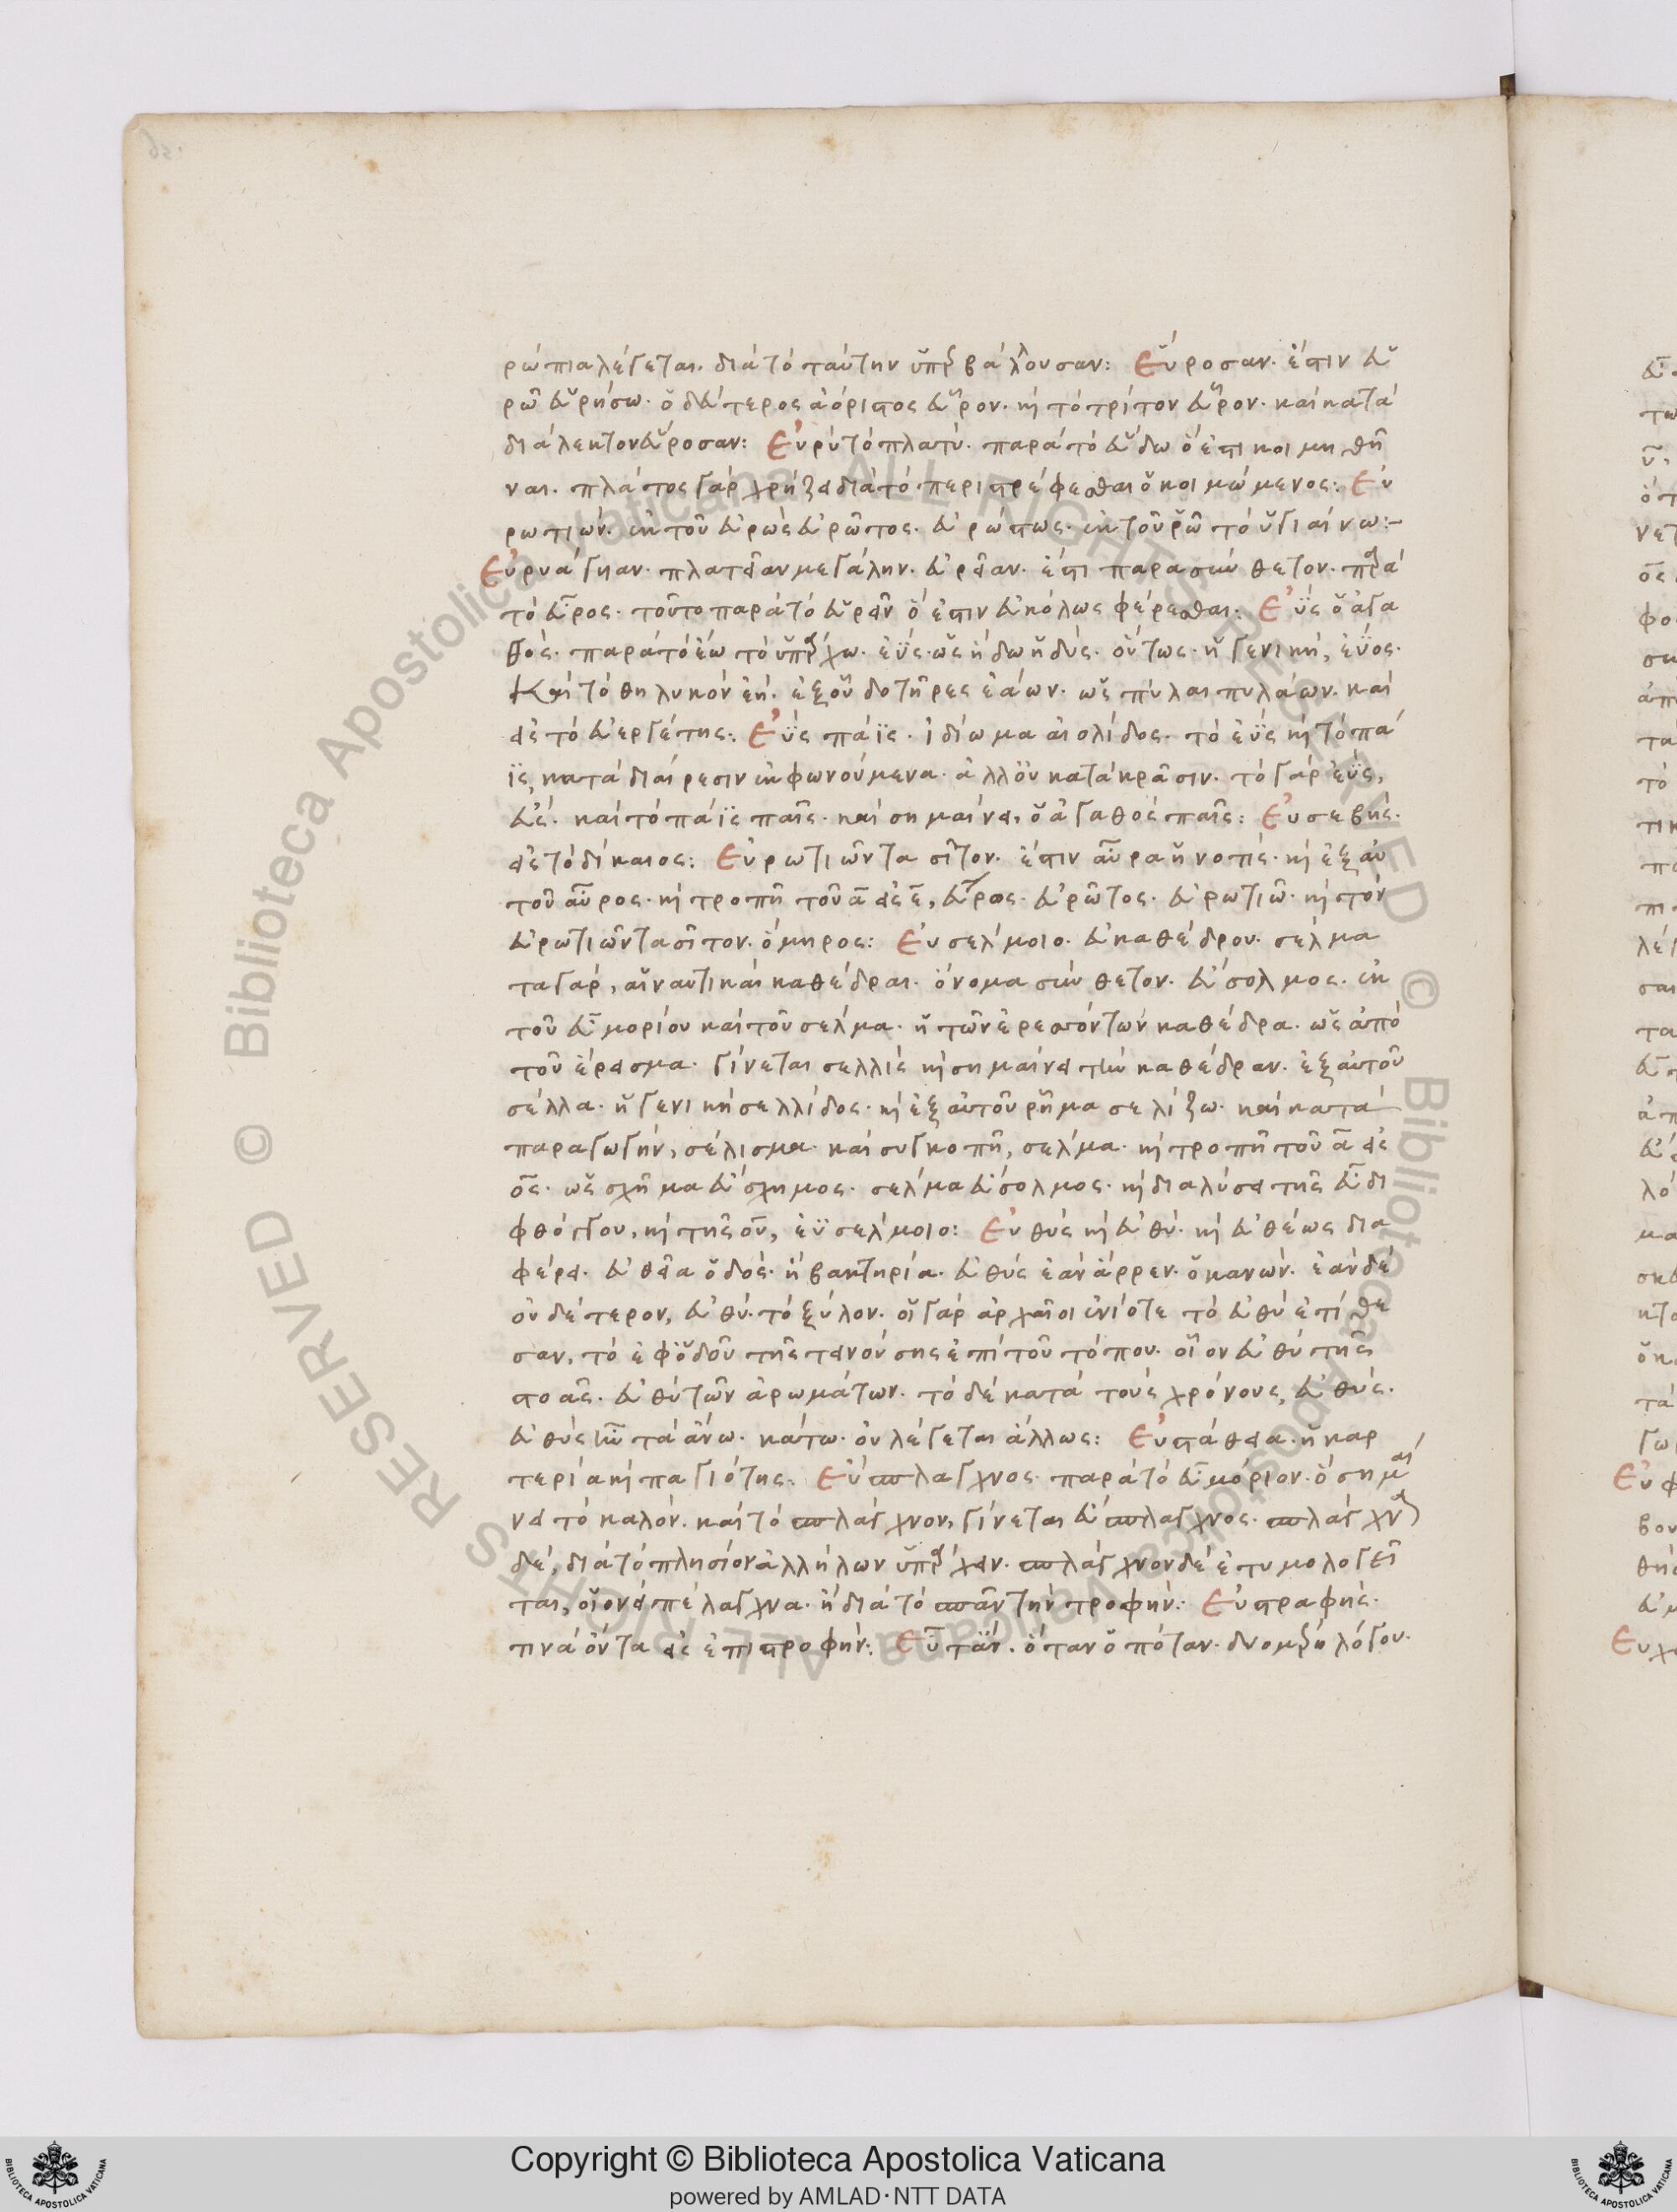 ρώπια λέγεται. διὰ τὸ ταύτην ὑπερβάλλουσαν: Εὕροσαν. ἔστιν εὑ
ρῶ εὑρήσω. ὁ δεύτερος ἀόριστος εὗρον. καὶ τὸ τρίτον εὗρον. καὶ κατὰ
διάλεκτον εὕροσαν: Εὐρὺ τὸ πλατύ. παρὰ τὸ εὕδω ὅ ἐστι κοιμηθῆ
ναι. πλάτος γὰρ χρήζει διὰ τὸ περιστρέφεσθαι ὁ κοιμώμενος: Εὐ
ρωτιών. ἐκ τοῦ εὐρὼς εὐρῶτος. εὐρώστως. ἐκ τοῦ ῥῶ τὸ ὑγιαίνω:-
Εὐρυάγηαν. πλατεῖαν μεγάλην. εὐρεῖαν. ἔστι παρασύνθετον. παρὰ
τὸ εὖρος. τοῦτο παρὰ τὸ εὑρεῖν ὅ ἐστιν εὐκόλως φέρεσθαι: Ἐΰς ὁ ἀγα
θός. παρὰ τὸ ἔω τὸ ὑπάρχω. ἐΰς. ὡς ἥδω ἡδύς. οὕτως. ἡ γενικὴ, ἐΰος.
Καὶ τὸ θηλυκὸν ἐή. ἐξ οὗ δοτῆρες ἐάων. ὡς πύλαι πυλάων. καὶ
εἰς τὸ εὐεργέτης: Ἐῢς πάϊς. ἰδίωμα αἰολίδος. τὸ ἐῢς καὶ τὸ πά
ϊς, κατὰ διαίρεσιν ἐκφωνούμενα. ἀλλ' οὐ κατὰ κρᾶσιν. τὸ γὰρ ἐῢς,
εὖς. καὶ τὸ πάϊς παῖς. καὶ σημαίνει, ὁ ἀγαθὸς παῖς: Εὐσεβής.
εἰς τὸ δίκαιος: Εὐρωτιῶντα σῖτον. ἔστιν αὔρα ἡ νοτίς. καὶ ἐξ αὐ
τοῦ αὖρος. καὶ τροπῇ τοῦ α εἰς ε, εὖρος. εὐρῶτος. εὐρωτιῶ. καὶ τὸν
εὐρωτιῶντα σῖτον. ὅμηρος: Εὐσέλμοιο. εὐκαθέδρου. σέλμα
τα γὰρ, αἱ ναυτικαὶ καθέδραι. ὄνομα σύνθετον. εὔσολμος. ἐκ
τοῦ εὖ μορίου καὶ τοῦ σέλμα. ἡ τῶν ἐρεσσόντων καθέδρα. ὡς ἀπὸ
τοῦ ἔρεισμα. γίνεται σελλὶς καὶ σημαίνει τὴν καθέδραν. ἐξ αὐτοῦ
σέλλα. ἡ γενικὴ σελλίδος. καὶ ἐξ αὐτοῦ ῥῆμα σελίζω. καὶ κατὰ
παραγωγὴν, σέλισμα. καὶ συγκοπῇ, σέλμα. καὶ τροπῇ τοῦ α εἰς
ος. ὡς σχῆμα εὔσχημος. σέλμα εὔσολμος. καὶ διαλύσει τῆς εὖ δι
φθόγγου, καὶ τῆς ου, ἐϋσέλμοιο: Εὐθὺς καὶ εὐθύ. καὶ εὐθέως δια
φέρει. εὐθεῖα ὁδός. ἢ βακτηρία. εὐθὺς ἐὰν ἄρρεν. ὁ κανών. ἐὰν δὲ
οὐδέτερον, εὐθύ. τὸ ξύλον. οἱ γὰρ ἀρχαῖοι ἐνίοτε τὸ εὐθὺ ἐτίθε
σαν, τὸ ἐφ' ὁδοῦ τῆς τεινούσης ἐπὶ τοῦ τόπου. οἷον εὐθὺ τῆς
στοᾶς. εὐθὺ τῶν ἀρωμάτων. τὸ δὲ κατὰ τοὺς χρόνους, εὐθύς.
εὐθὺς ἦν τὰ ἄνω. κάτω. οὐ λέγεται ἄλλως: Εὐστάθεια. ἡ καρ
τερία καὶ παγιότης: Εὔσπλαγχνος. παρὰ τὸ εὖ μόριον. ὃ σημαί
νει τὸ καλὸν. καὶ τὸ σπλάγχνον, γίνεται εὔσπλαγχνος. σπλάγχνα
δέ, διὰ τὸ πλησίον ἀλλήλων ὑπάρχειν. σπλάγχνον δὲ ἐτυμολογεῖ
ται, οἱονεὶ σπέλαγχνα. ἢ διὰ τὸ σπᾶν τὴν τροφήν: Εὐστραφής.
τινὰ ὄντα εἰς ἐπιστροφήν: Εὖτ' ἄν. ὅταν ὁπόταν.